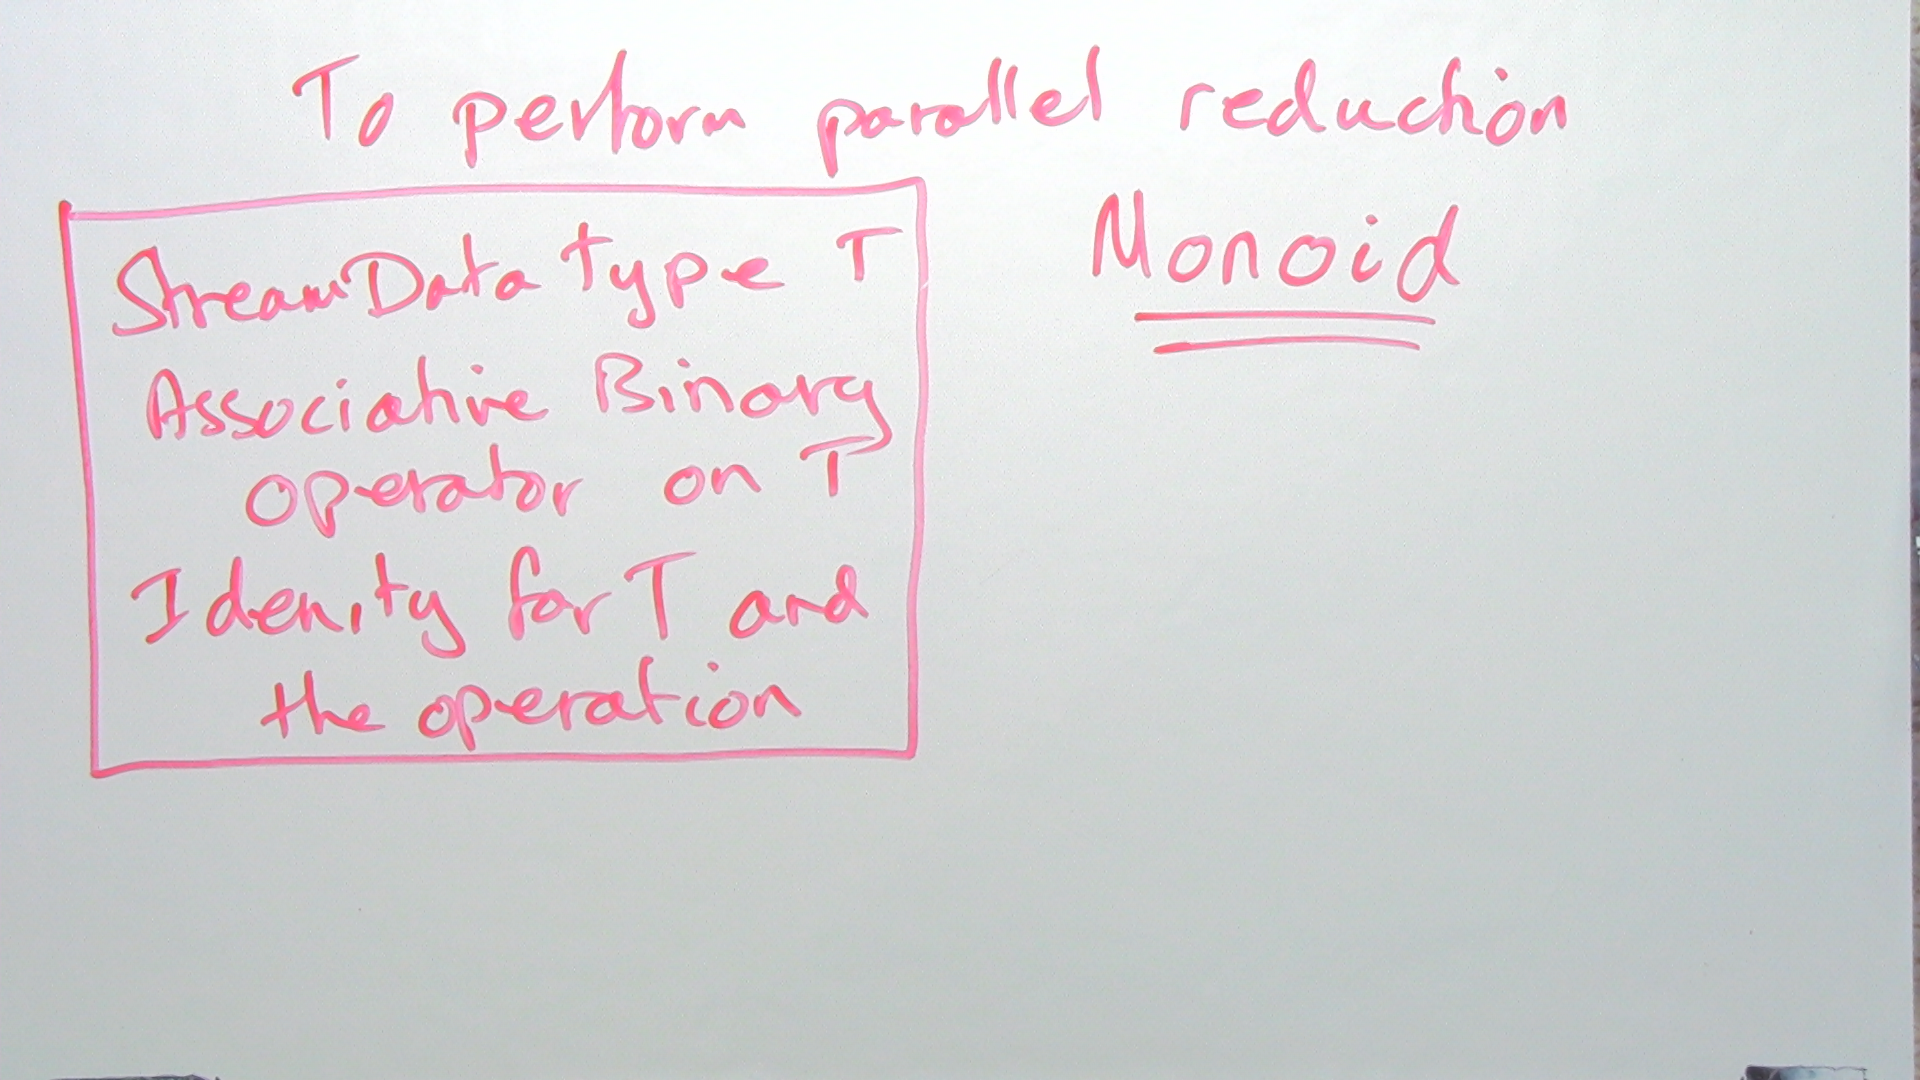 To perform parallel reduction
Monoid
Stream Data type T
Associative Binary
operator on T
Idenity for T and
the operation